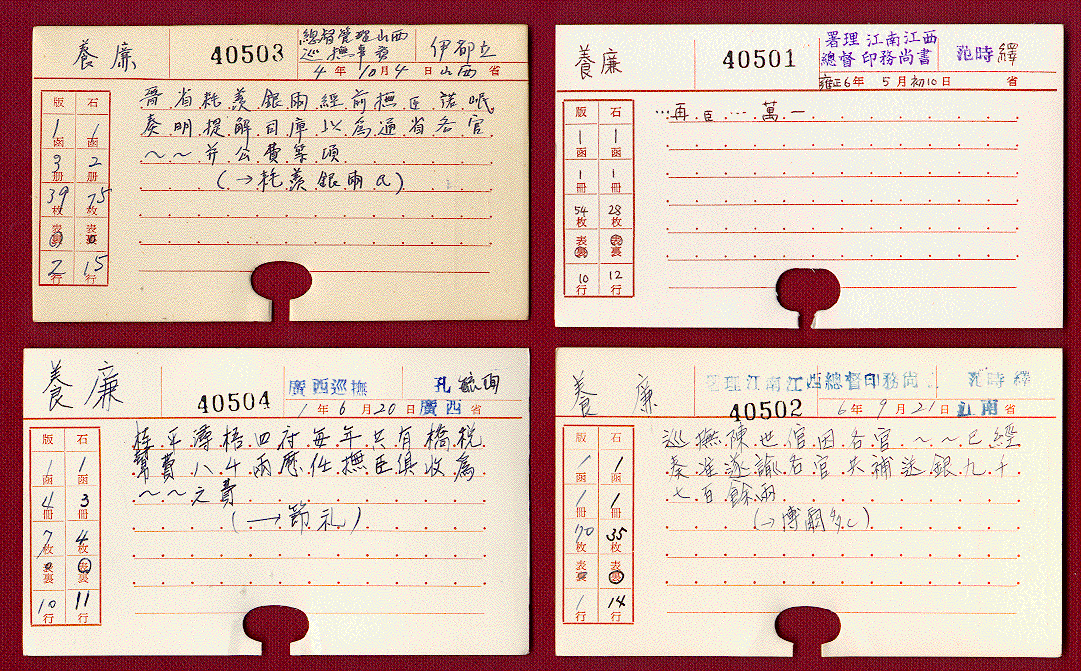 養廉
40503
總督管理山西
巡撫事務
伊都立
4年10月4日山西省
版 石
1函 1函
3册 2册
39枚 75枚
表裏 表裏
2行 15行
晋省耗羨銀兩經前撫臣諾岷
奏明提解司庫以為通省各官
~~并公費等項
(→耗羨銀兩a)
養廉
40501
署理江南江西
總督印務尚書
范時繹
雍正6年5月初10日 省
版 石
1函 1函
1冊 1冊
54枚 28枚
表裏 表裏
10行 12行
…再臣…萬一
養廉
40504
廣西巡撫
孔毓珣
1年6月20日廣西省
版 石
1函 1函
4冊 3冊
7枚 4枚
表裏 表裏
10行 11行
桂平潯梧四府每年共有橋税
幫費八千兩歷任撫臣俱收為
~~之費
(→節礼)
養廉
40502
署理江南江西總督印務尚
范時繹
6年9月21日江南省
版 石
1函 1函
1冊 1冊
70枚 35枚
表裏 表裏
1行 14行
巡撫陳世倌因各官~~已經
奏准遂諭各官夫補送銀九十
七百餘兩
(→博爾多c)